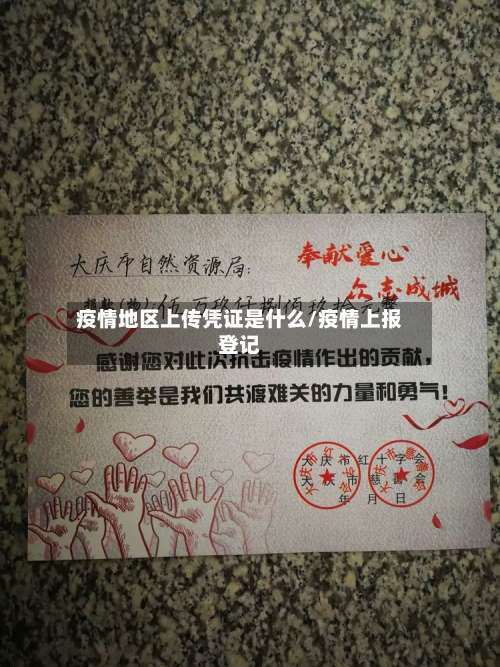 奉献爱心
众志成城
大庆市自然资源局:
捐款(物):伍万玖仟捌佰玖拾元整
疫情地区上传凭证是什么/疫情上报
登记
感谢您对此次抗击疫情作出的贡献,
您的善举是我们共渡难关的力量和勇气!
大庆市红十字会
大庆市慈善会
年 月 日